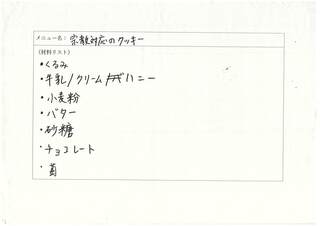 メニュー名: 宗教対応のクッキー
(材料リスト)
・くるみ
・牛乳/クリーム/ハニー
・小麦粉
・バター
・砂糖
・チョコレート
・